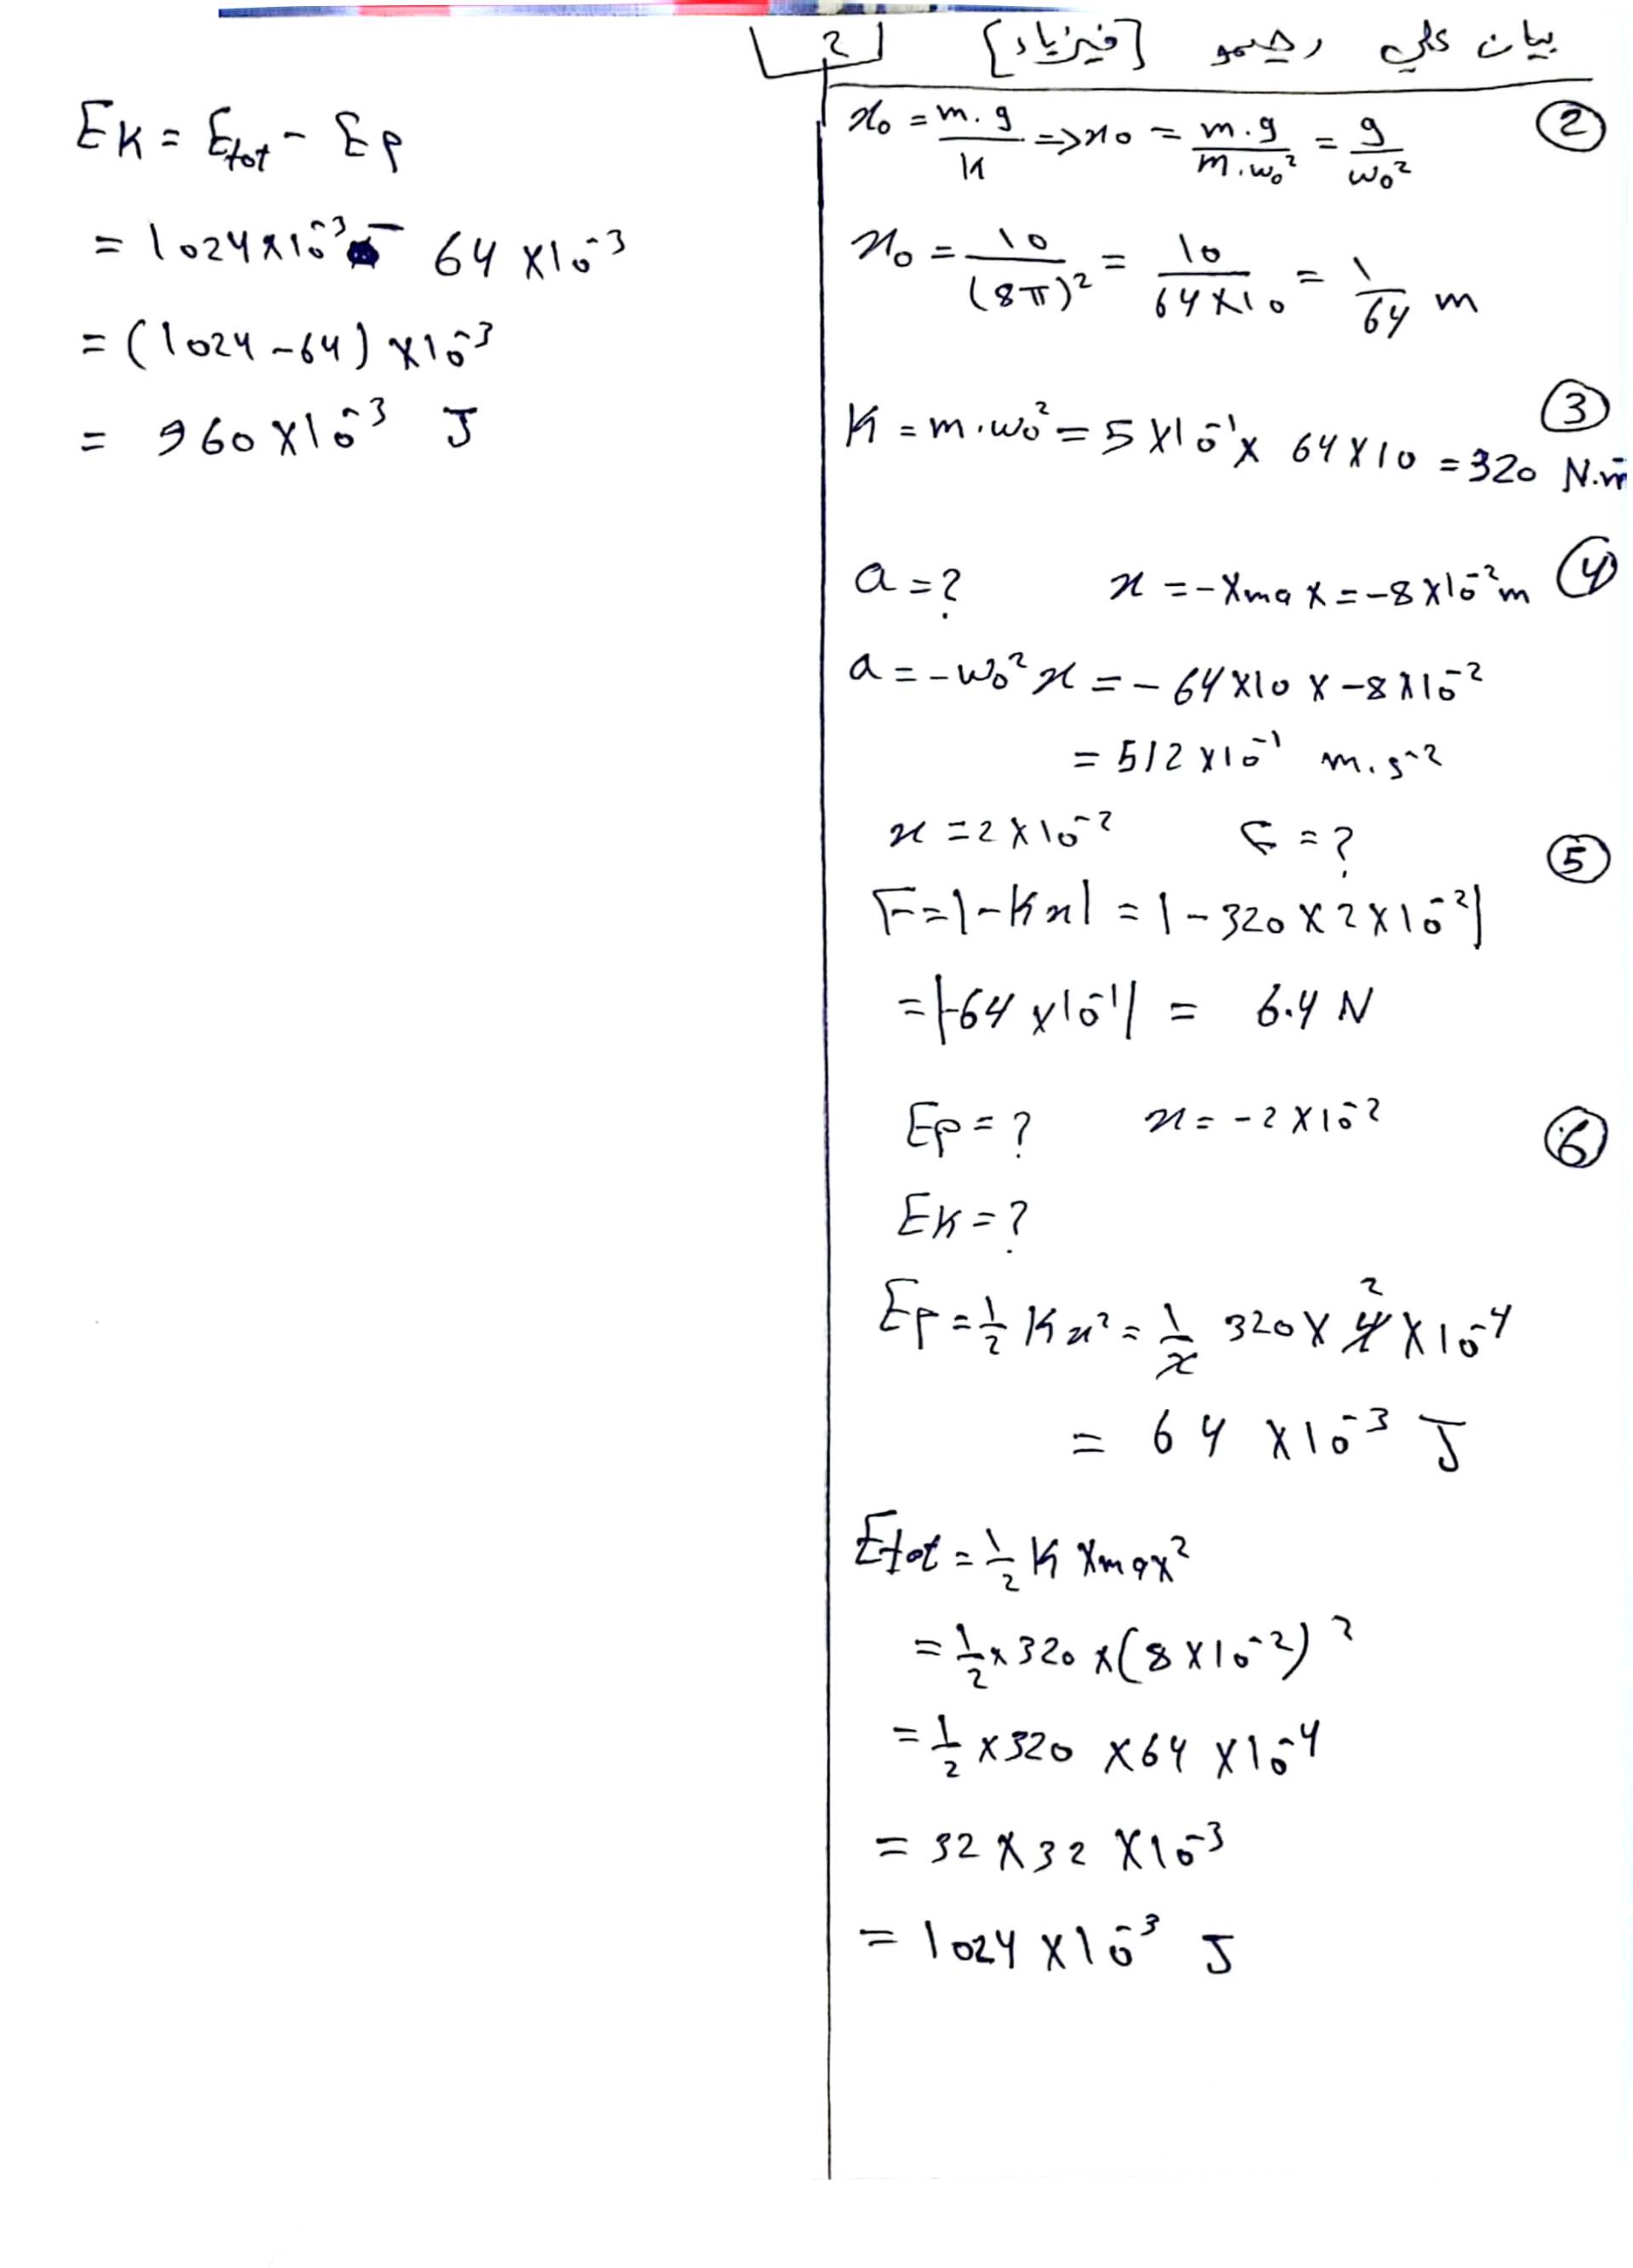 بيان علي رحيمو [فيزياء] 2
② x₀ = m.g/k => x₀ = m.g/m.w₀² = g/w₀²
x₀ = 10/(8π)² = 10/64×10 = 1/64 m
③ K = m.w₀² = 5×10⁻¹× 64×10 = 320 N.m
④ a = ? x = -Xmax = -8×10⁻²m
a = -w₀²x = - 64×10 × -8×10⁻²
= 512×10⁻¹ m.s⁻²
⑤ x = 2×10⁻² F = ?
F = |-Kx| = |-320×2×10⁻²|
= |-64×10⁻¹| = 6.4 N
⑥ Ep = ? x = -2×10⁻²
EK = ?
Ep = 1/2 Kx² = 1/2 320× 4 2 ×10⁻⁴
= 64 ×10⁻³ J
Etot = 1/2 K Xmax²
= 1/2×320×(8×10⁻²)²
= 1/2 ×320 ×64 ×10⁻⁴
= 32×32×10⁻³
= 1024×10⁻³ J
EK = Etot - Ep
= 1024×10⁻³ - 64×10⁻³
= (1024-64)×10⁻³
= 960×10⁻³ J